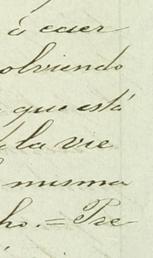 á caer
olviendo
que está
la vie
misma
ho. = Pre